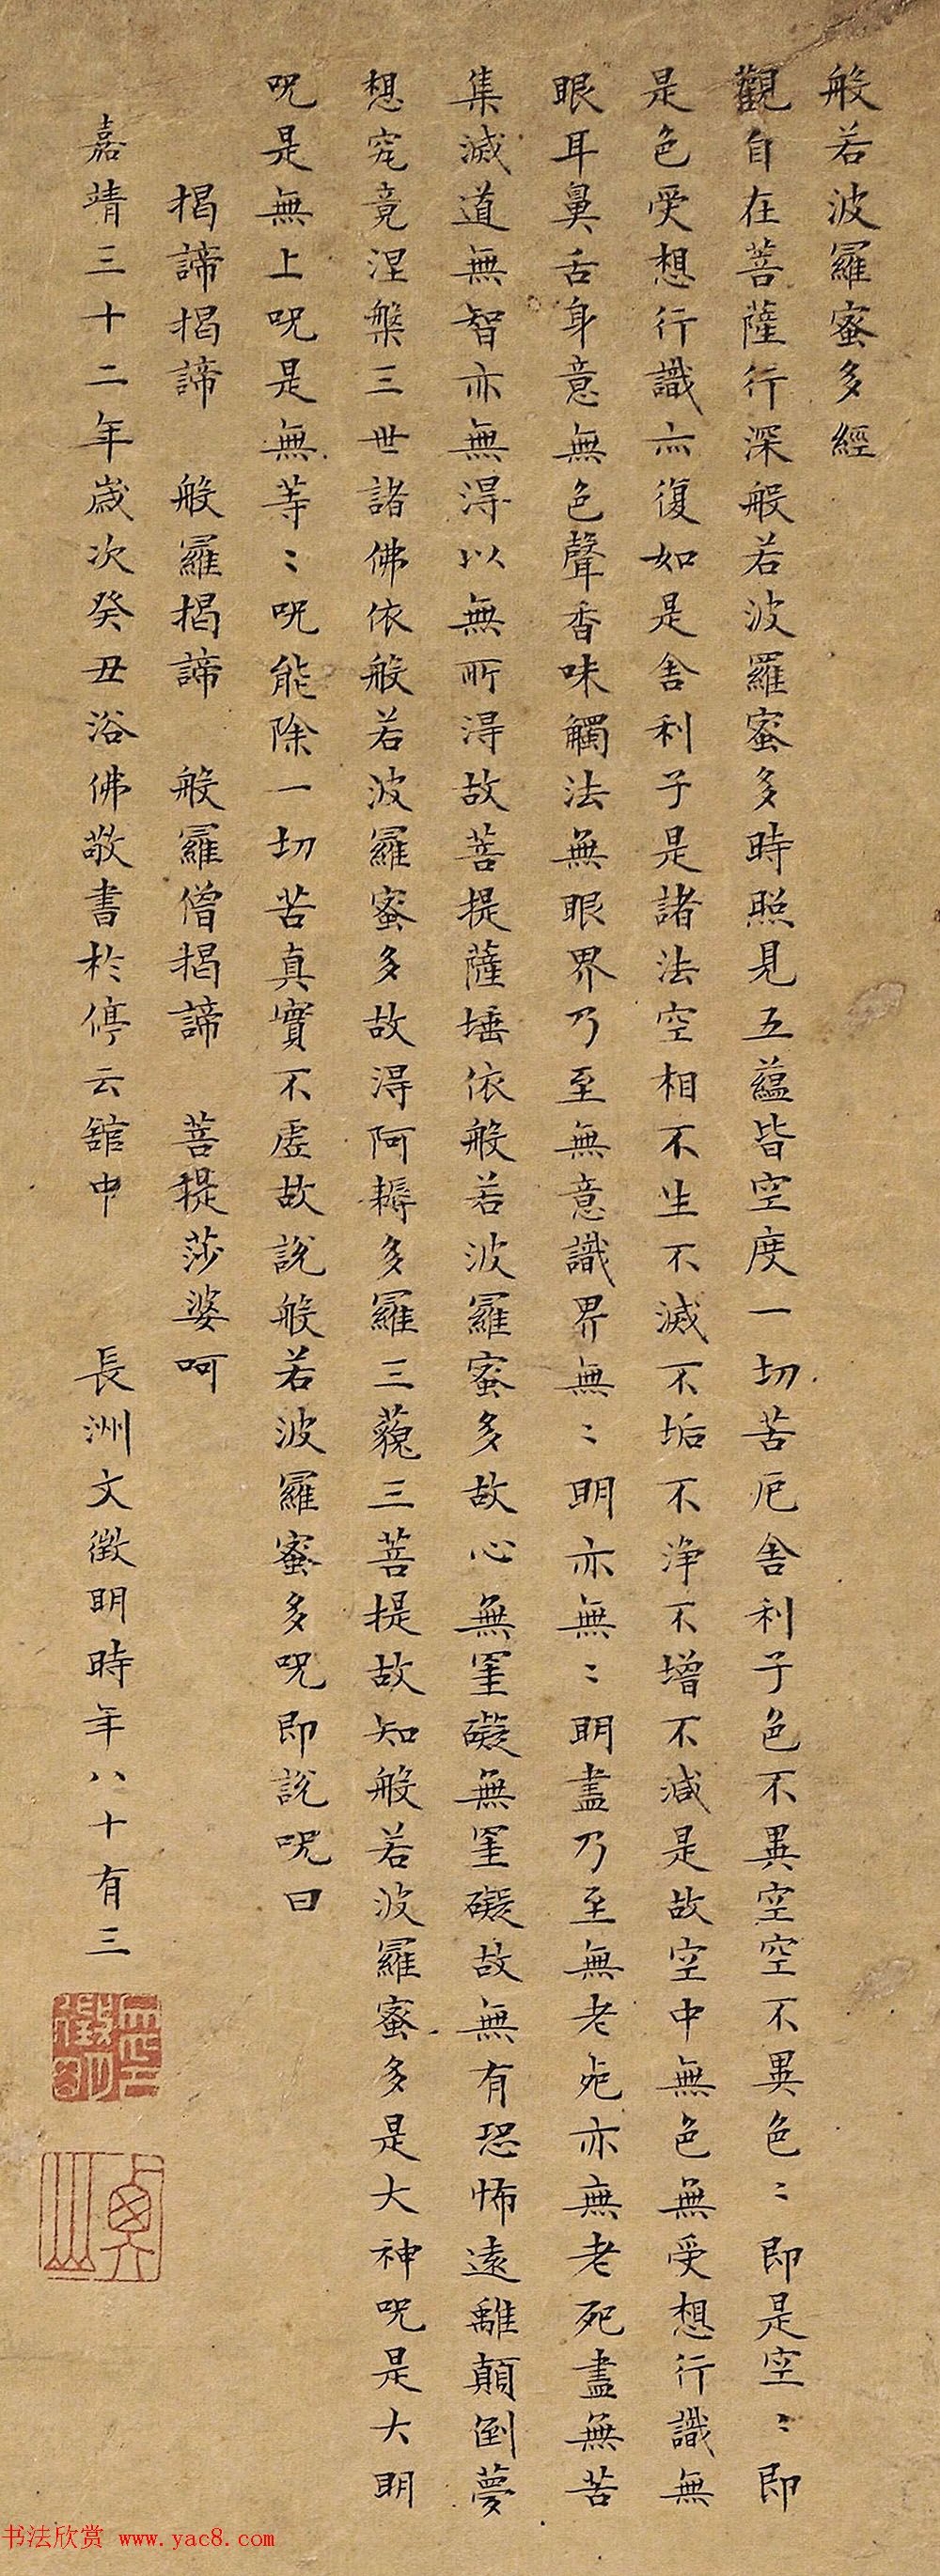 般若波羅蜜多經
觀自在菩薩行深般若波羅蜜多時照見五蘊皆空度一切苦厄舍利子色不異空空不異色〻即是空〻即
是色受想行識亦復如是舍利子是諸法空相不生不滅不垢不淨不增不減是故空中無色無受想行識無
眼耳鼻舌身意無色聲香味觸法無眼界乃至無意識界無〻明亦無〻明盡乃至無老死亦無老死盡無苦
集滅道無智亦無得以無所得故菩提薩埵依般若波羅蜜多故心無罣礙無罣礙故無有恐怖遠離顛倒夢
想究竟涅槃三世諸佛依般若波羅蜜多故得阿耨多羅三藐三菩提故知般若波羅蜜多是大神呪是大明
呪是無上呪是無等〻呪能除一切苦真實不虛故說般若波羅蜜多呪即說呪曰
揭諦揭諦 般羅揭諦 般羅僧揭諦 菩提莎婆呵
嘉靖三十二年歲次癸丑浴佛敬書於停云舘中 長洲文徵明時年八十有三
書法欣赏 www.yac8.com